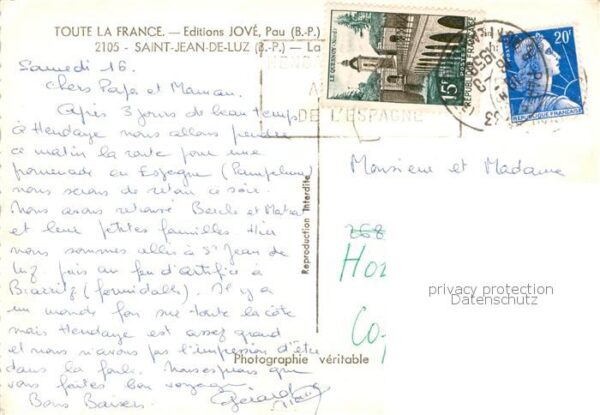 TOUTE LA FRANCE. — Editions JOVÉ, Pau (B.-P.)
2105 - SAINT-JEAN-DE-LUZ (B.-P.) — La
Samedi 16.
Chers Papa et Maman.
Après 3 jours de beau temps
à Hendaye nous allons prendre
ce matin la route pour une
promenade en Espagne (Pampelune)
nous serons de retour ce soir.
Nous avons retrouvé et
et leur petites familles. Hier
nous sommes allés à St Jean de
Luz. puis au feu d'artifice à
Biarritz (formidable). Il y a
un monde fou sur toute la côte
mais Hendaye est assez grand
et nous n'avons pas l'impression d'être
dans la foule. Nous espérons que
vous faites bon voyage.
Bons Baisers.
LE QUESNOY (Nord)
15F
POSTES
REPUBLIQUE FRANÇAISE
20F
REPUBLIQUE FRANÇAISE
DE L'ESPAGNE
1958
Monsieur et Madame
Reproduction Interdite
Photographie véritable
privacy protection
Datenschutz